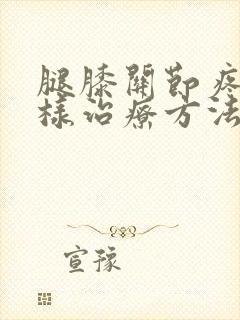 腿膝關節疼
樣治療方法
宣豫